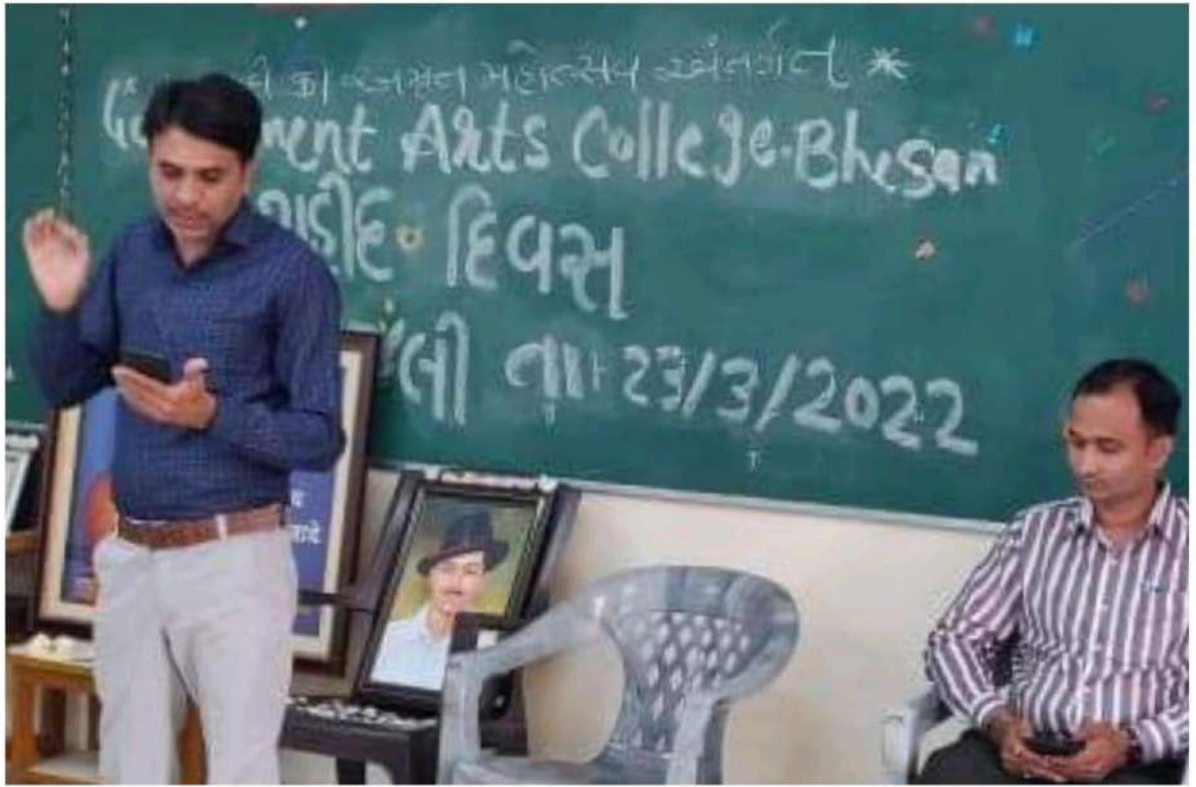 का અમૃત મહોત્સવ અંતર્ગત *
Arts College-Bhesan
શહીદ દિવસ
તા 23/3/2022